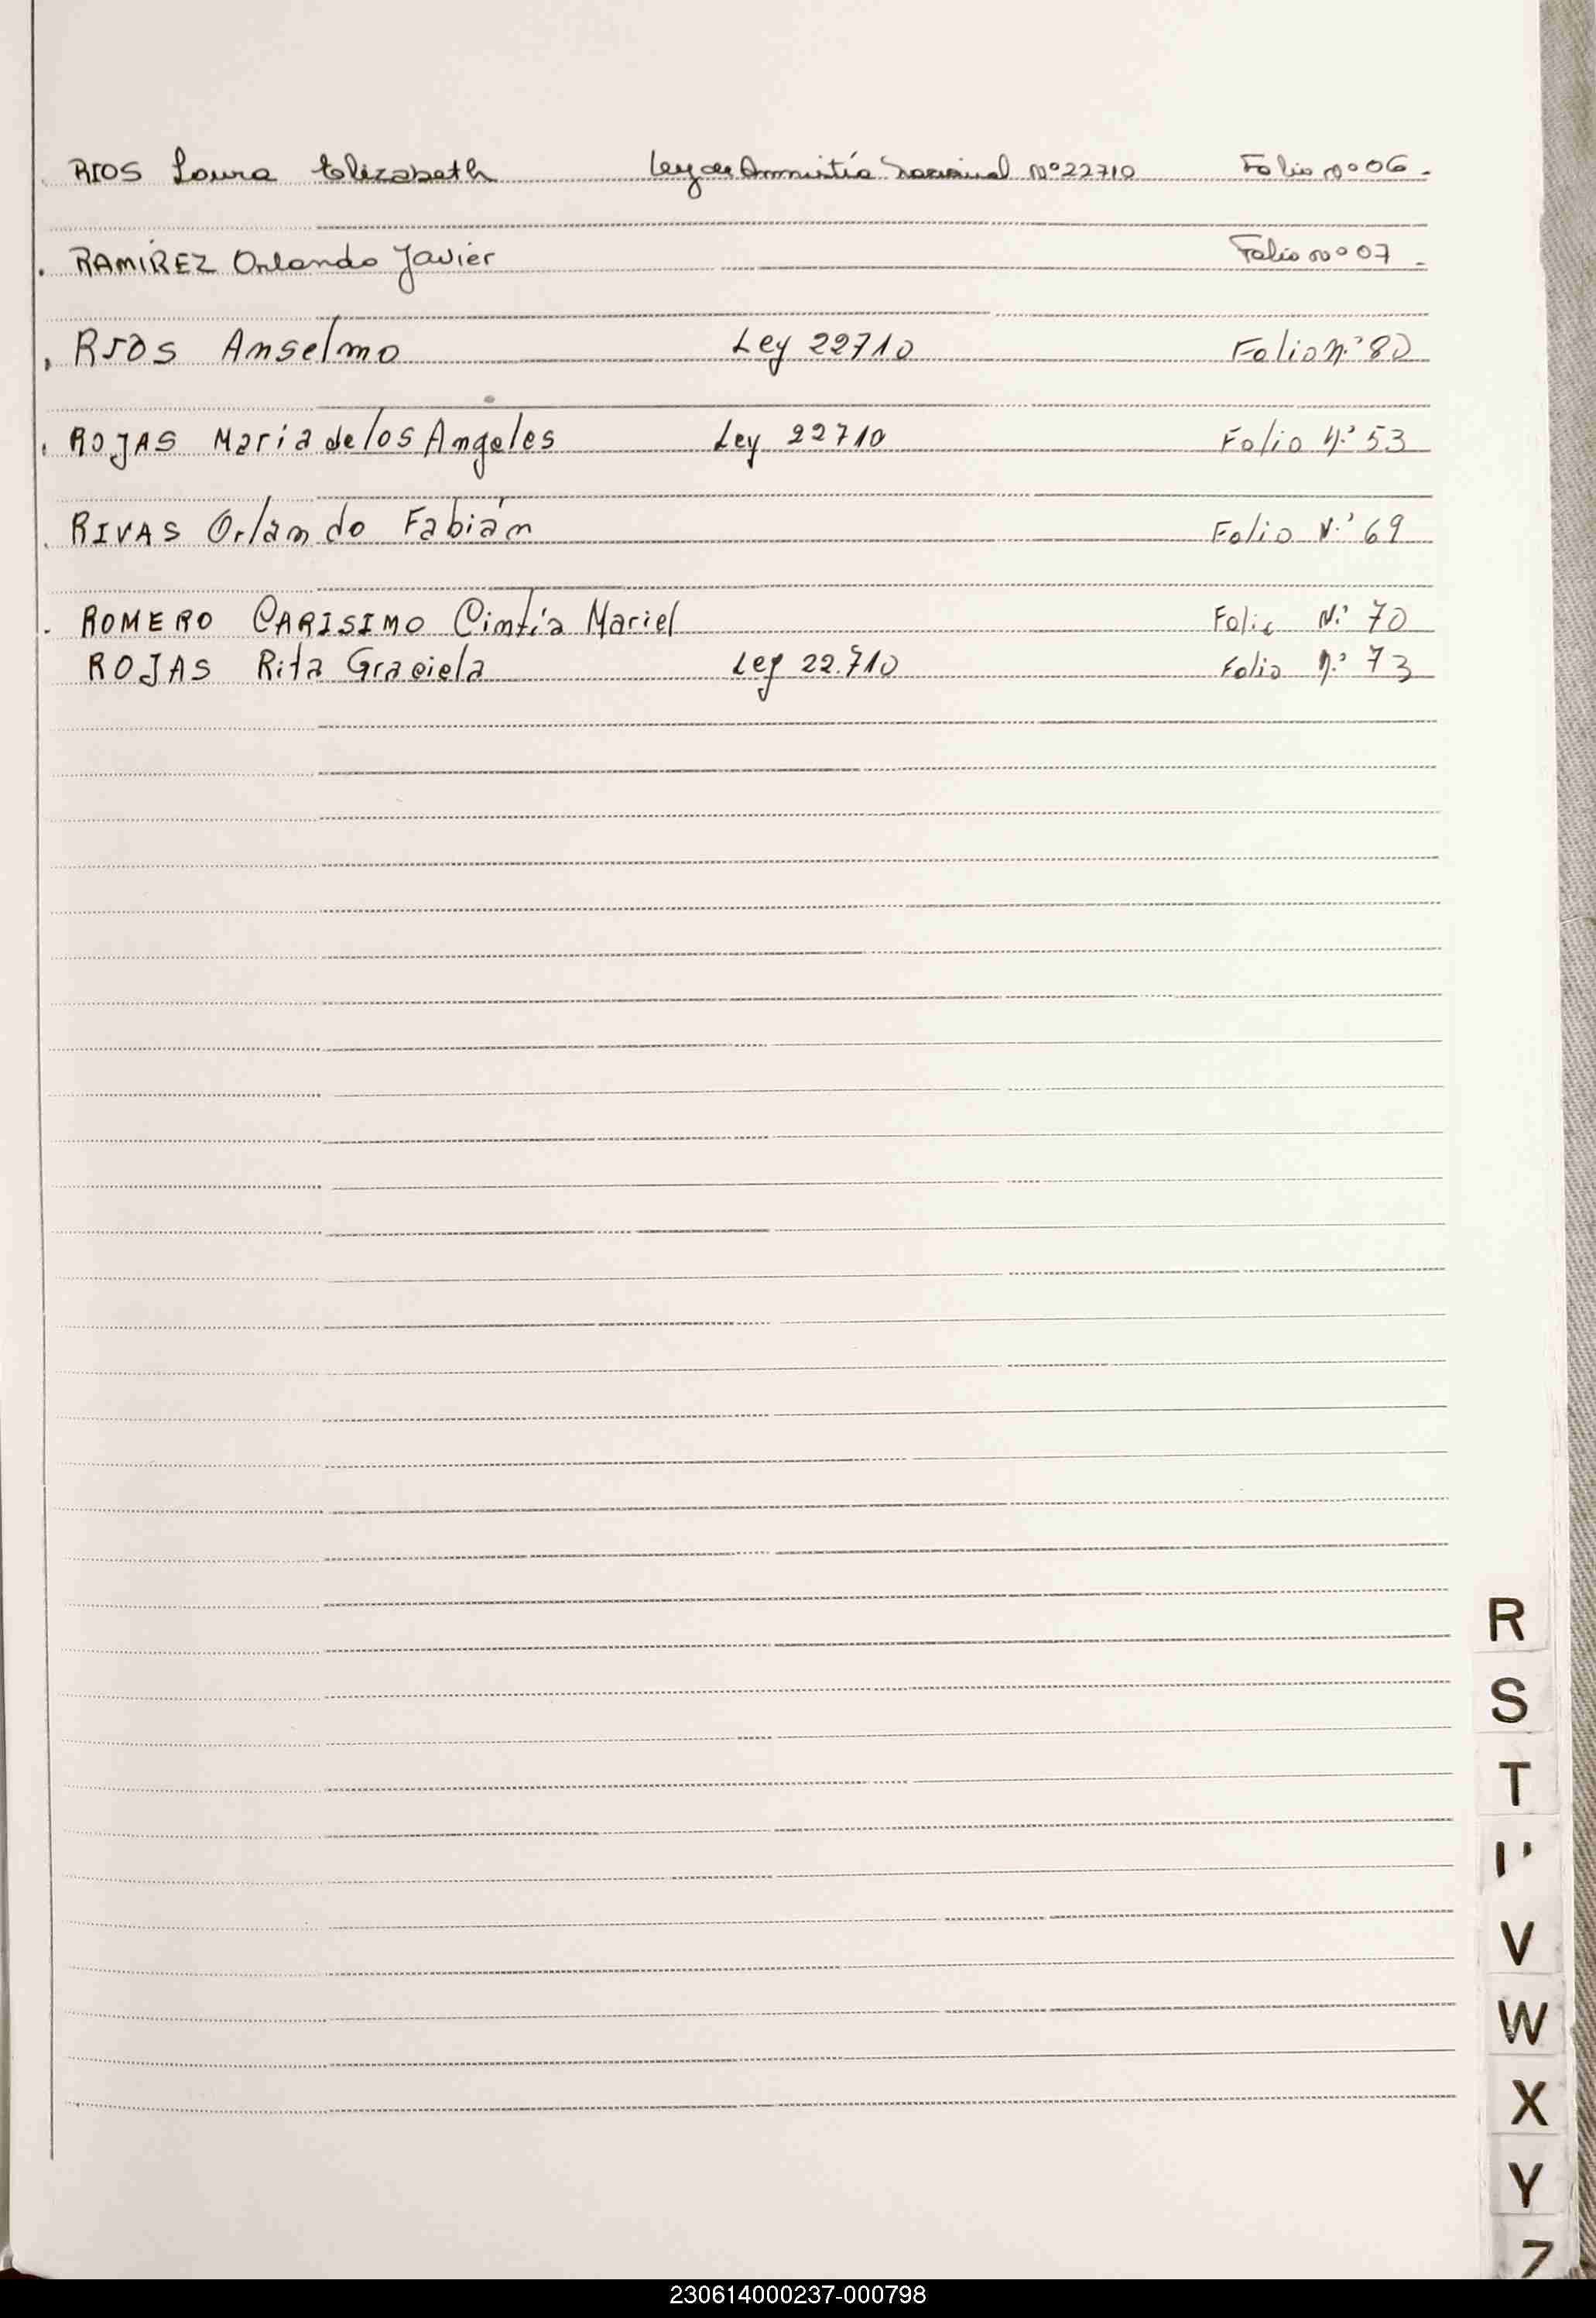 RIOS Laura Elizabeth Ley de Amnistía Nacional Nº 22710 Folio nº 06.
RAMÍREZ Orlando Javier Folio nº 07.
RIOS Anselmo Ley 22710 Folio n.º 80
ROJAS Maria de los Angeles Ley 22710 Folio N.º 53
RIVAS Orlando Fabián Folio N.º 69
ROMERO CARISIMO Cintia Mariel Folio N.º 70
ROJAS Rita Graciela Ley 22.710 Folio n.º 73
R
S
T
V
W
X
Y
Z
230614000237-000798